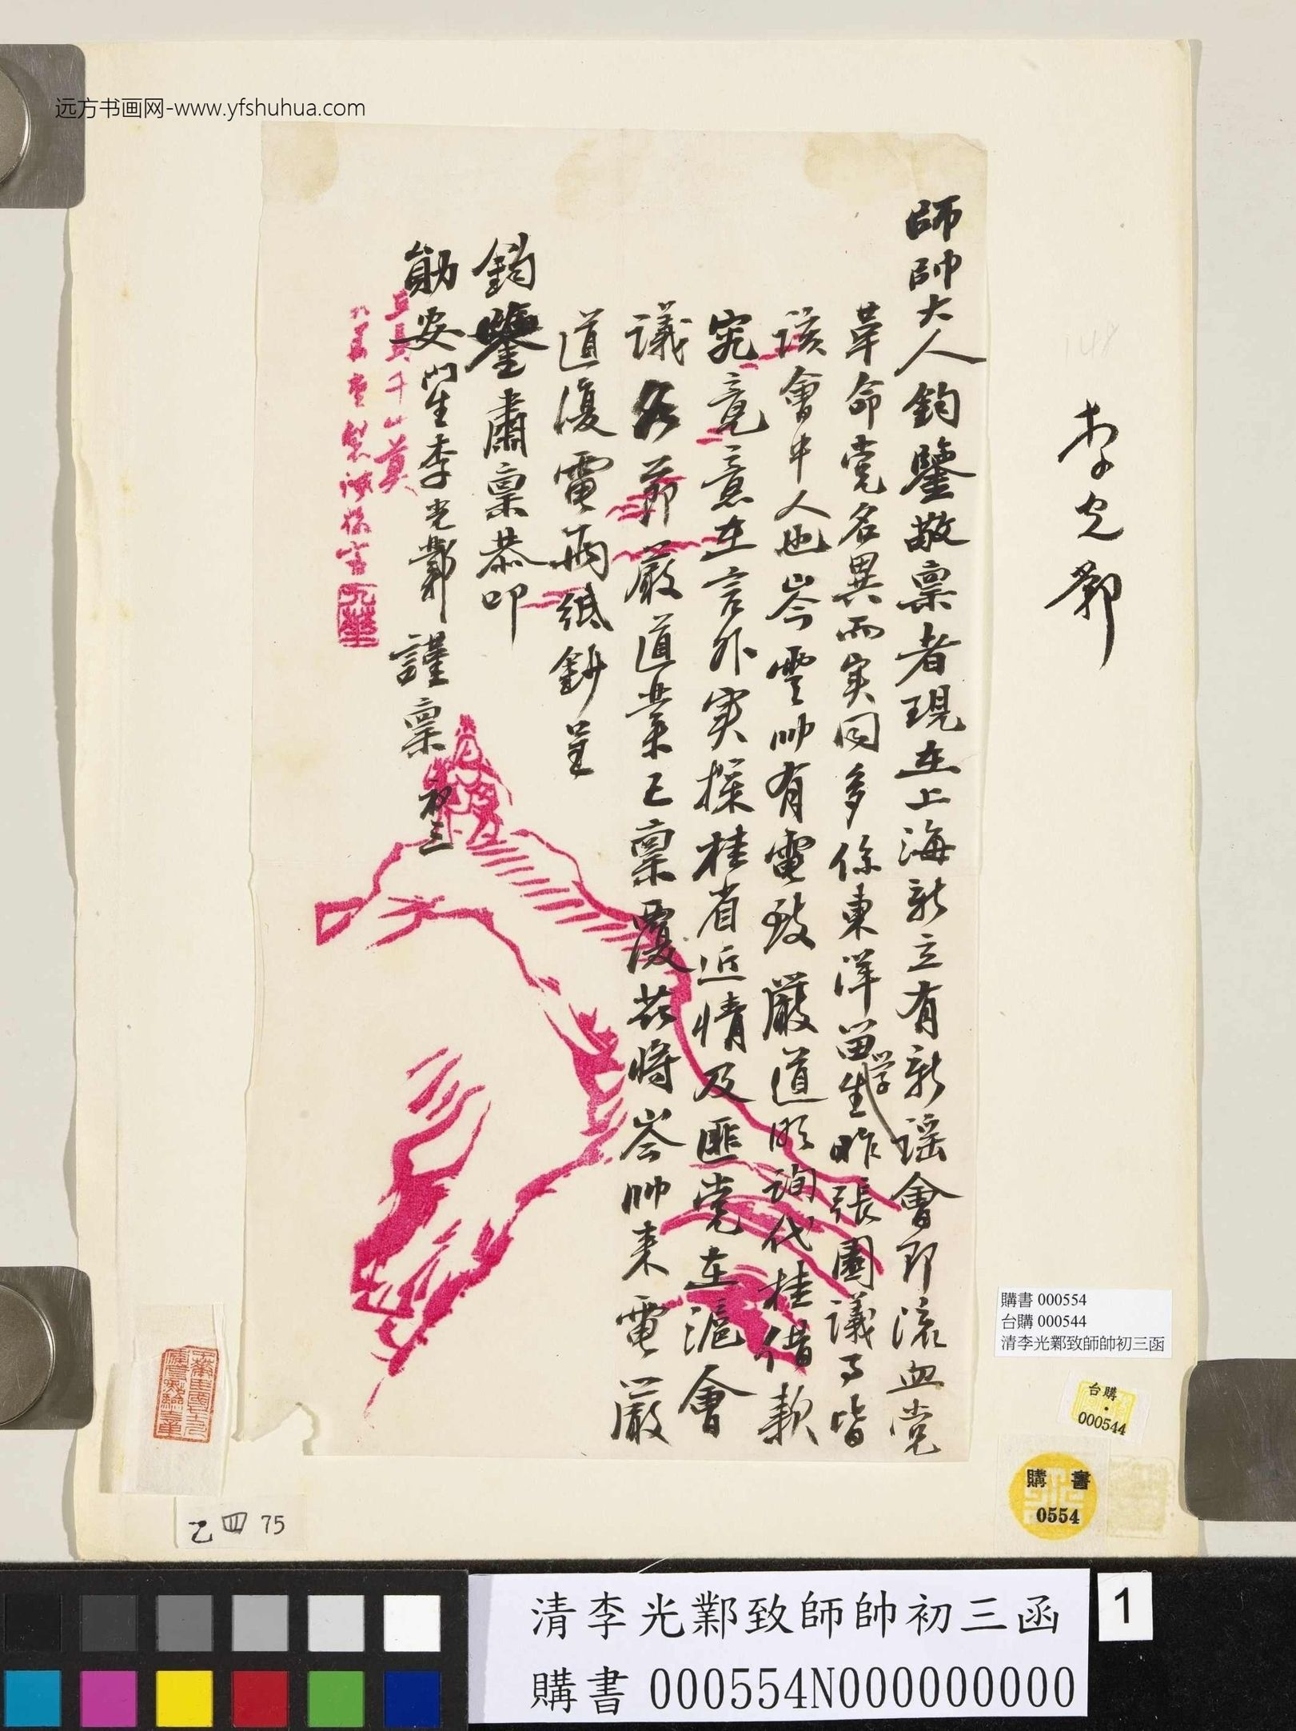 远方书画网-www.yfshuhua.com
李光鄴
師帥大人鈞鑒敬稟者現在上海新立有新謡會即流血黨
革命党名異而实同多係東洋留学生昨張園議事皆
該會中人也岑雲帥有電致嚴道明詢代桂借款
究竟意在言外实探桂省近情及匪党在滬會
議各節嚴道業已稟覆茲將岑帥来電嚴
道復電兩紙鈔呈
鈞鑒肅稟恭叩
勛安門生李光鄴謹稟 初三
九華
購書 000554
台購 000544
清李光鄴致師帥初三函
台購
000544
購書
0554
乙四 75
清李光鄴致師帥初三函
購書 000554N000000000
1